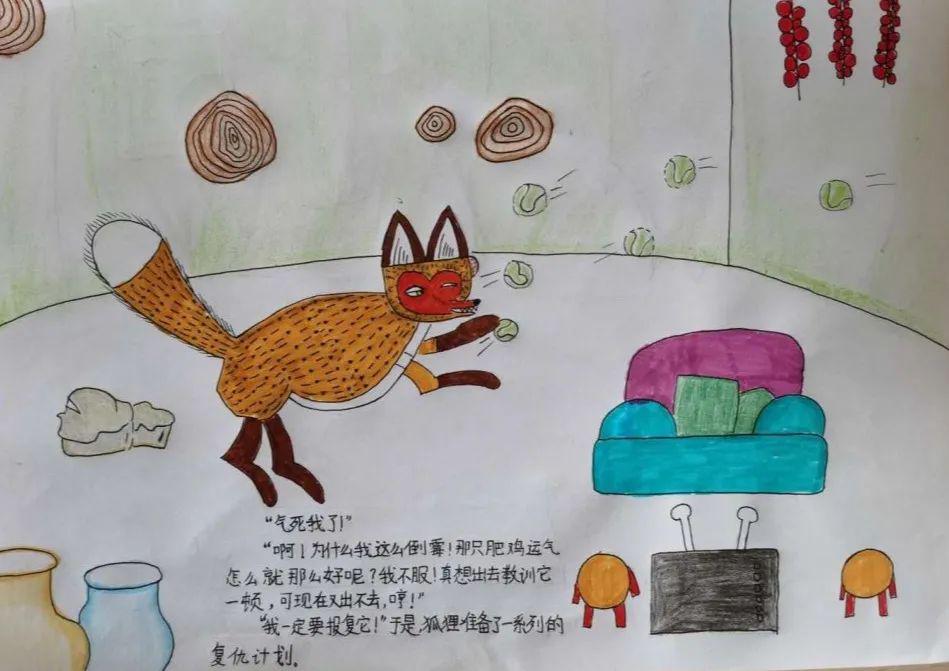 “气死我了！”
“啊！为什么我这么倒霉！那只肥鸡运气
怎么就那么好呢？我不服！真想出去教训它
一顿，可现在又出不去，哼！”
“我一定要报复它！”于是，狐狸准备了一系列的
复仇计划。